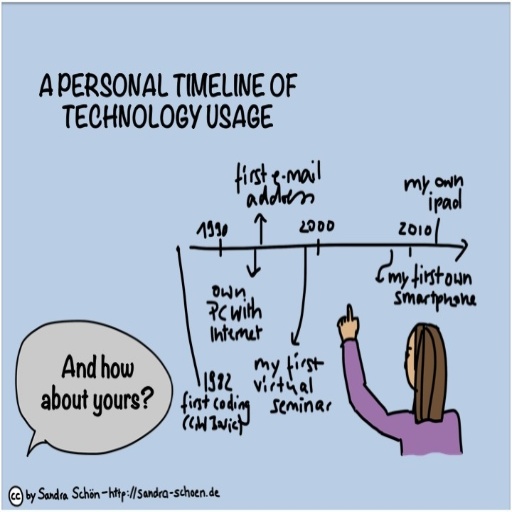 A PERSONAL TIMELINE OF
TECHNOLOGY USAGE
first e-mail
address
my own
ipad
1990
2000
2010
own
PC with
Internet
my first own
smartphone
1982
first coding
my first
virtual
seminar
And how
about yours?
cc by Sandra Schön - http://sandra-schoen.de